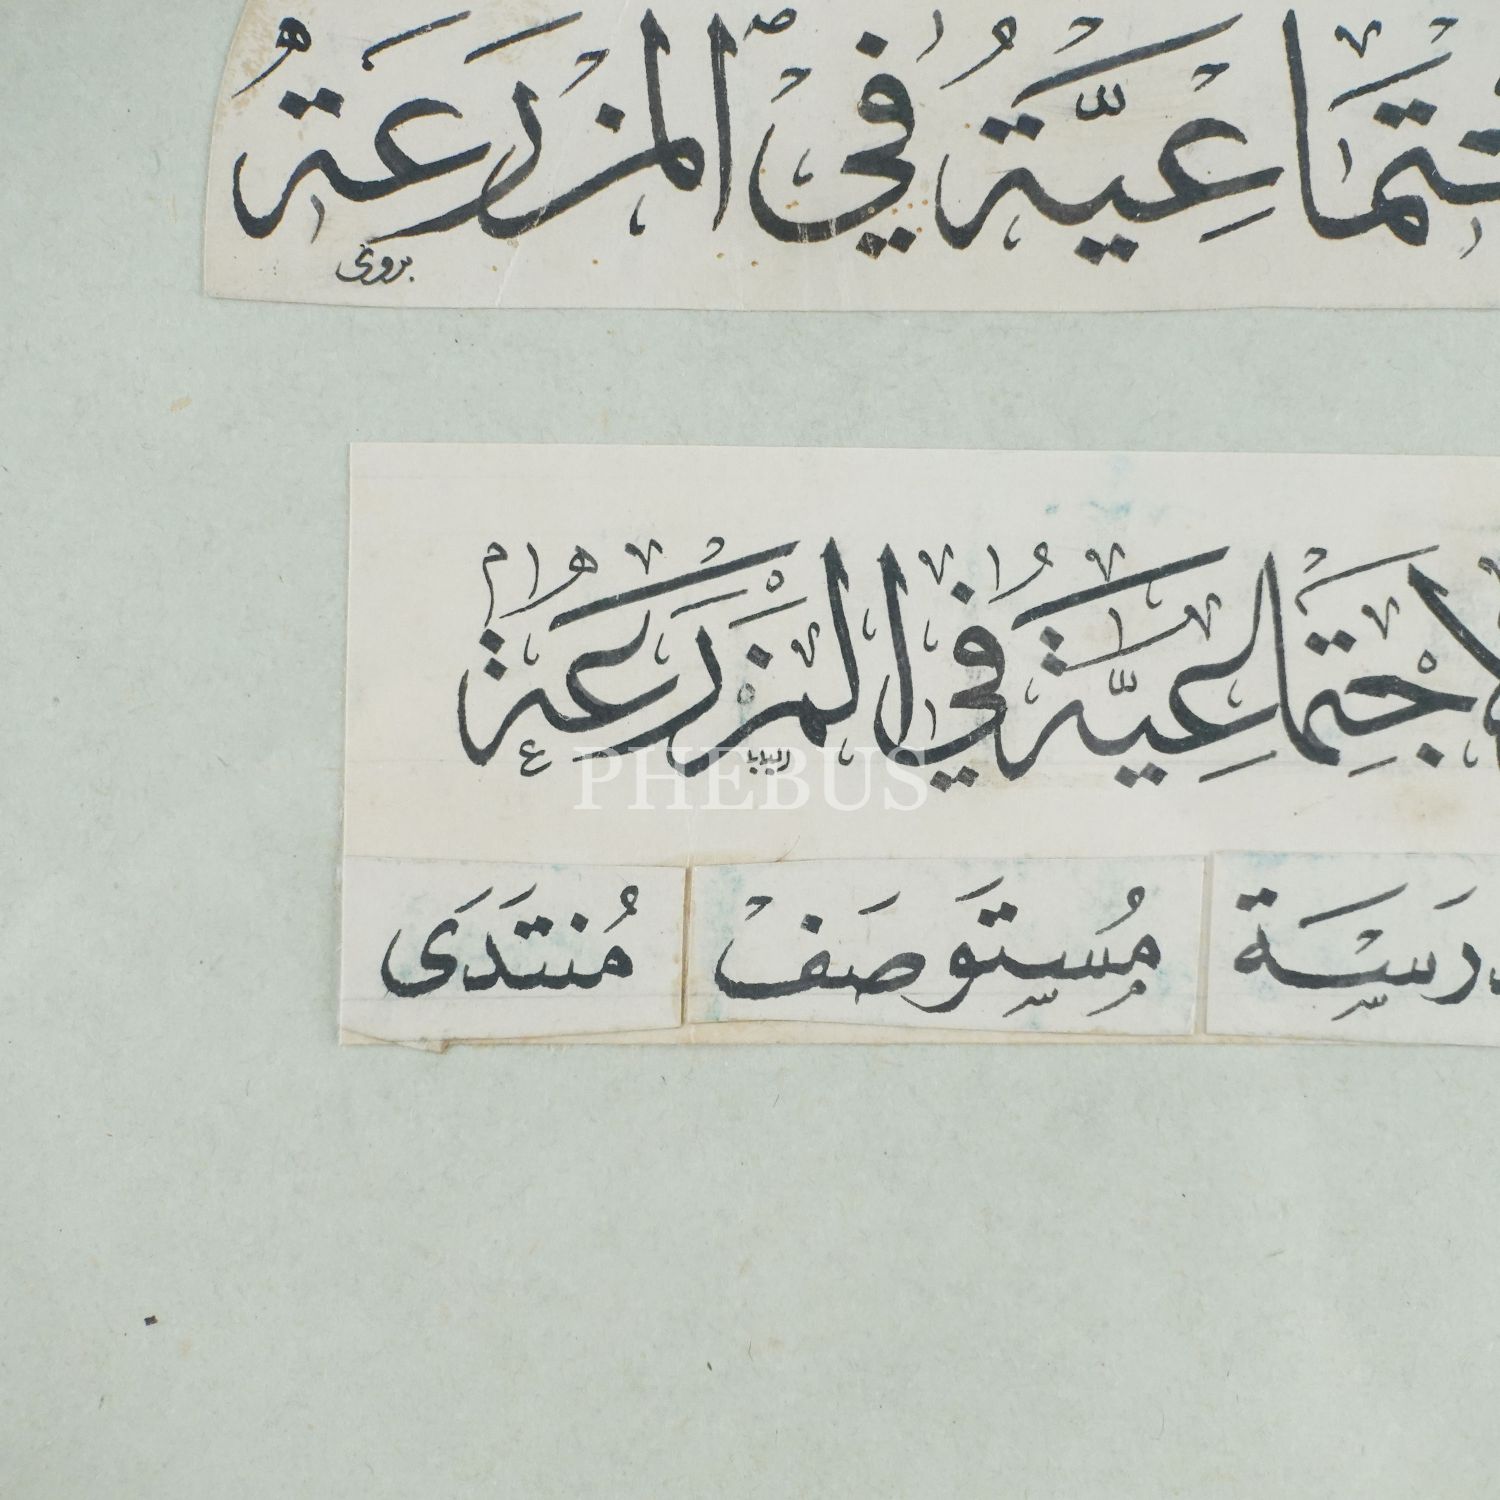 جتماعيّة في المزرعة
بروى
الاجتماعيّة في المزرعة
PHEBUS
مدرسة مُستَوصَفْ مُنتَدَى